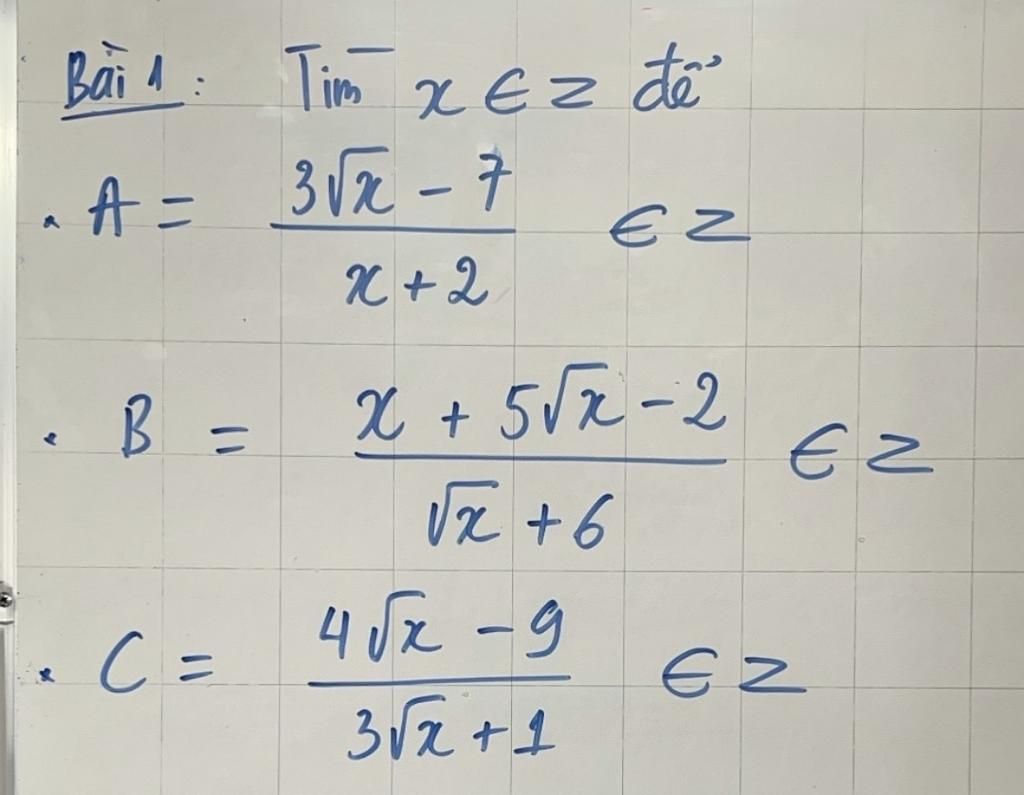 Bài 1: Tìm x ∈ Z để
• A = (3√x - 7)/(x + 2) ∈ Z
• B = (x + 5√x - 2)/(√x + 6) ∈ Z
• C = (4√x - 9)/(3√x + 1) ∈ Z